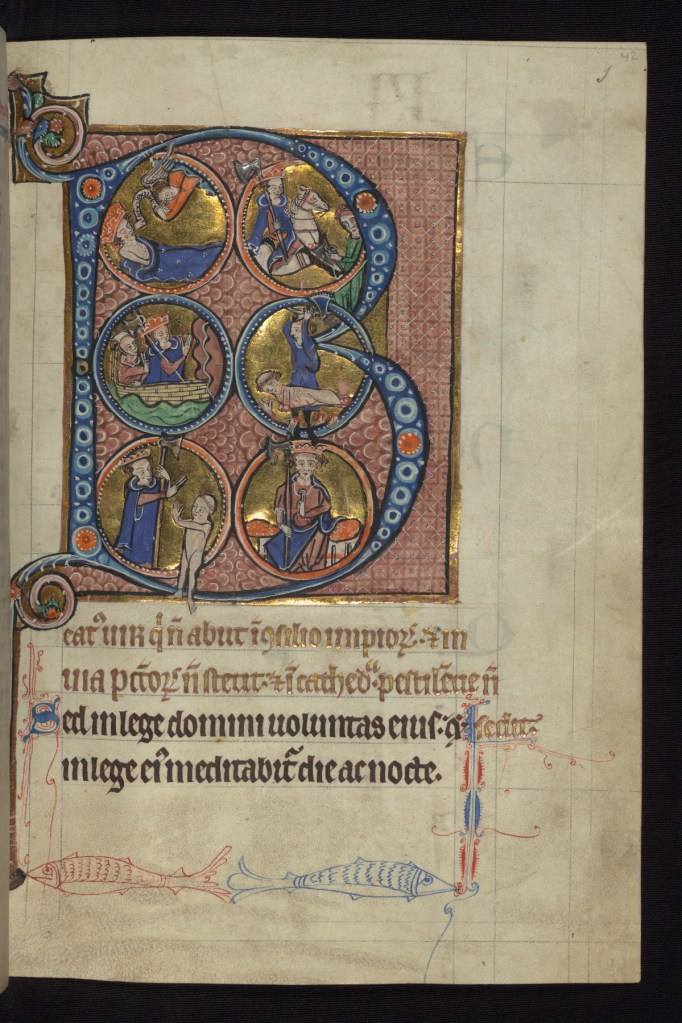 42
B
eatꝰ uir q̇ n̄ abiit ī ꝯsilio impioꝝ. ⁊ in
uia pc̄coꝝ n̄ stetit. ⁊ ī cathedᵃ pestilēcie n̄
Sed in lege domini uoluntas eius. ⁊ sedit.
in lege eiꝰ meditabit᷑ die ac nocte.